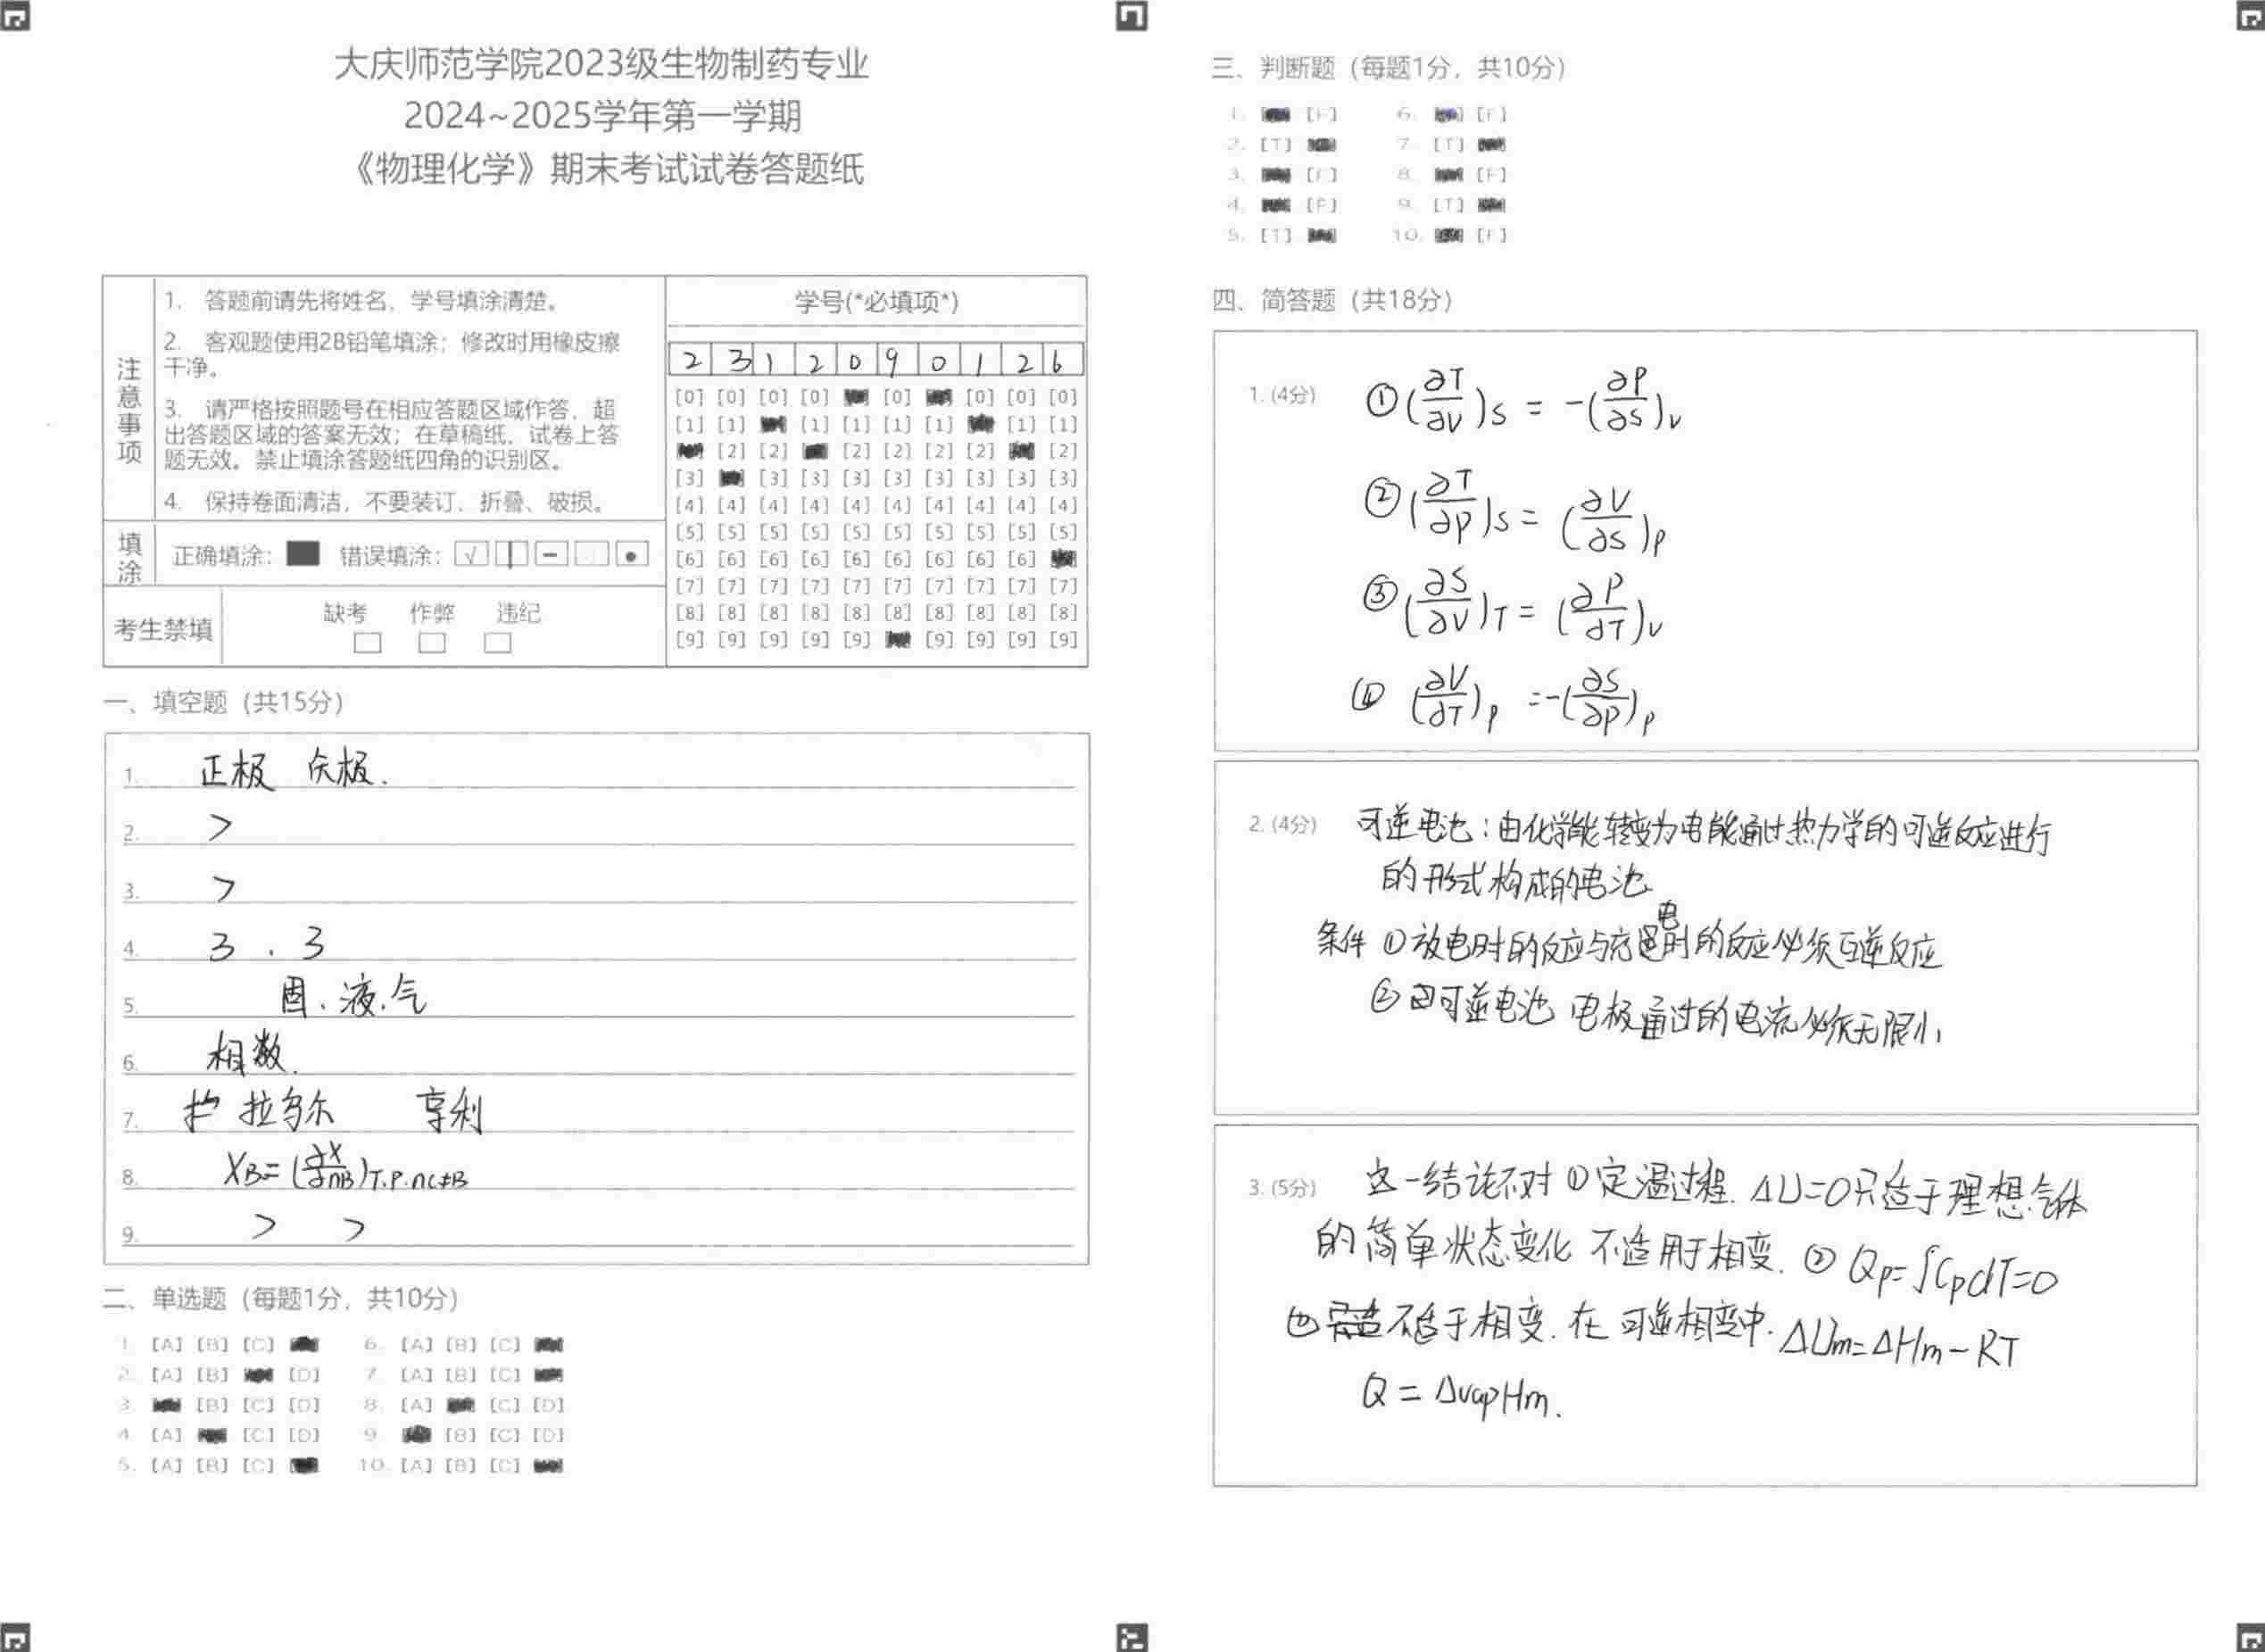 大庆师范学院2023级生物制药专业
2024~2025学年第一学期
《物理化学》期末考试试卷答题纸
注意事项
1. 答题前请先将姓名、学号填涂清楚。
2. 客观题使用2B铅笔填涂；修改时用橡皮擦
干净。
3. 请严格按照题号在相应答题区域作答，超
出答题区域的答案无效；在草稿纸、试卷上答
题无效。禁止填涂答题纸四角的识别区。
4. 保持卷面清洁，不要装订、折叠、破损。
填涂
正确填涂： 错误填涂：
考生禁填
缺考 作弊 违纪
学号(*必填项*)
2 3 1 2 0 9 0 1 2 6
[0] [0] [0] [0] [0] [0] [0] [0]
[1] [1] [1] [1] [1] [1] [1] [1]
[2] [2] [2] [2] [2] [2] [2]
[3] [3] [3] [3] [3] [3] [3] [3] [3]
[4] [4] [4] [4] [4] [4] [4] [4] [4] [4]
[5] [5] [5] [5] [5] [5] [5] [5] [5] [5]
[6] [6] [6] [6] [6] [6] [6] [6] [6]
[7] [7] [7] [7] [7] [7] [7] [7] [7] [7]
[8] [8] [8] [8] [8] [8] [8] [8] [8] [8]
[9] [9] [9] [9] [9] [9] [9] [9] [9]
一、填空题（共15分）
1. 正极 负极.
2. >
3. >
4. 3 . 3
5. 固、液.气
6. 相数.
7. 拉乌尔 亨利
8. XB=(∂X/∂nB)T.P.nC≠B
9. > >
二、单选题（每题1分，共10分）
1. [A] [B] [C] 6. [A] [B] [C]
2. [A] [B] [D] 7. [A] [B] [C]
3. [B] [C] [D] 8. [A] [C] [D]
4. [A] [C] [D] 9. [B] [C] [D]
5. [A] [B] [C] 10. [A] [B] [C]
三、判断题（每题1分，共10分）
1. [F] 6. [F]
2. [T] 7. [T]
3. [F] 8. [F]
4. [F] 9. [T]
5. [T] 10. [F]
四、简答题（共18分）
1. (4分) ①(∂T/∂V)S = -(∂P/∂S)V
②(∂T/∂P)S = (∂V/∂S)P
③(∂S/∂V)T = (∂P/∂T)V
④ (∂V/∂T)P =-(∂S/∂P)P
2. (4分) 可逆电池：由化学能转变为电能通过热力学的可逆反应进行
的形式构成的电池
条件 ①放电时的反应与充电时的反应必须互逆反应
② 可逆电池 电极通过的电流必须无限小
3. (5分) 这一结论不对 ①定温过程. ΔU=0只适于理想气体
的简单状态变化 不适用于相变. ② Qp=∫CpdT=0
也 不适于相变. 在 可逆相变中. ΔUm=ΔHm-RT
Q = ΔvapHm.